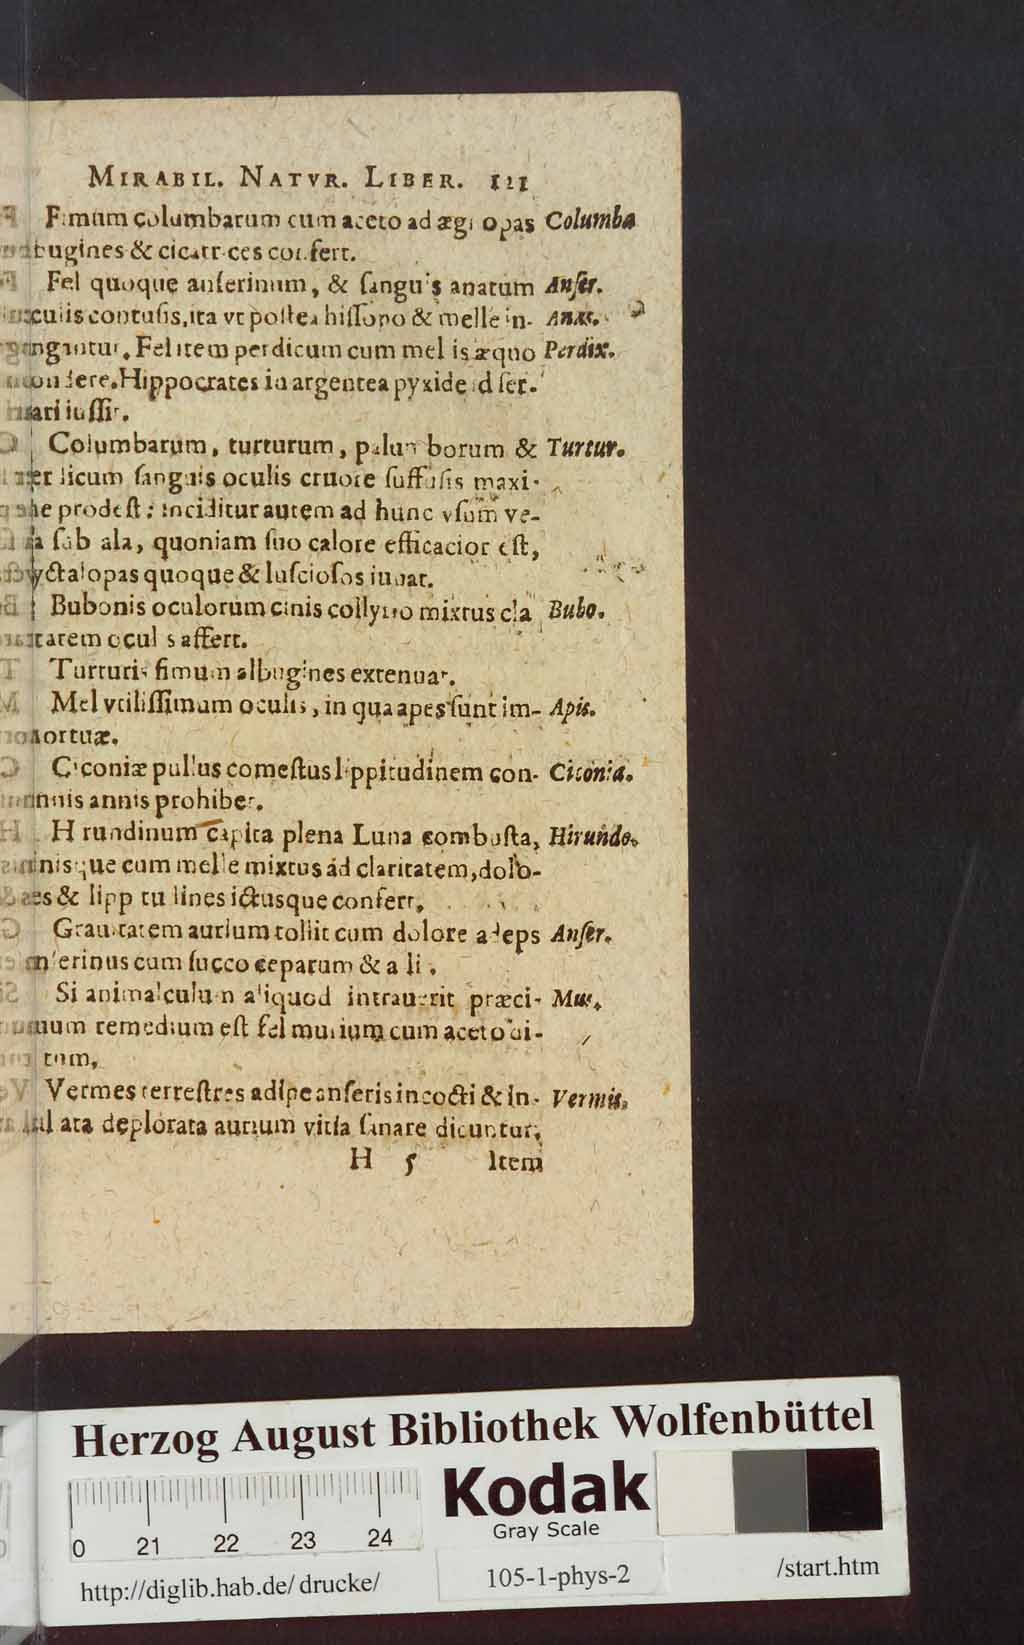 MIRABIL. NATVR. LIBER. 121
Fimum columbarum cum aceto ad ægilopas Columba
bugines & cicatrices confert.
Fel quoque anſerinum, & ſanguis anatum Anſer.
oculis contuſis, ita vt poſtea hiſſopo & melle in- Anas.
ungantur. Fel item perdicum cum mellis æquo Perdix.
pondere. Hippocrates in argentea pyxide id ſer-
uari iuſſit.
Columbarum, turturum, palumborum & Turtur.
ſanguis oculis cruore ſuffuſis maxi-
me prodeſt: inciditur autem ad hunc vſum ve-
na ſub ala, quoniam ſuo calore efficacior eſt,
nyctalopas quoque & luſcioſos iuuat.
Bubonis oculorum cinis collyrio mixtus cla Bubo.
ritatem oculis affert.
Turturis fimum albugines extenuat.
Mel vtiliſſimum oculis, in qua apes ſunt im- Apis.
mortuæ.
Ciconiæ pullus comeſtus lippitudinem con- Ciconia.
tinuis annis prohibet.
Hirundinum capita plena Luna combuſta, Hirundo.
cinisque cum melle mixtus ad claritatem, dolo-
res & lippitudines ictusque confert.
Grauitatem aurium tollit cum dolore adeps Anſer.
anſerinus cum ſucco ceparum & alii.
Si animalculum aliquod intrauerit præci- Mus.
puum remedium eſt fel murium cum aceto di-
tum.
Vermes terreſtres adipe anſeris incocti & in- Vermis.
ata deplorata aurium vitia ſanare dicuntur.
H 5 Item
Herzog August Bibliothek Wolfenbüttel
Kodak
Gray Scale
0 21 22 23 24
http://diglib.hab.de/drucke/ 105-1-phys-2 /start.htm